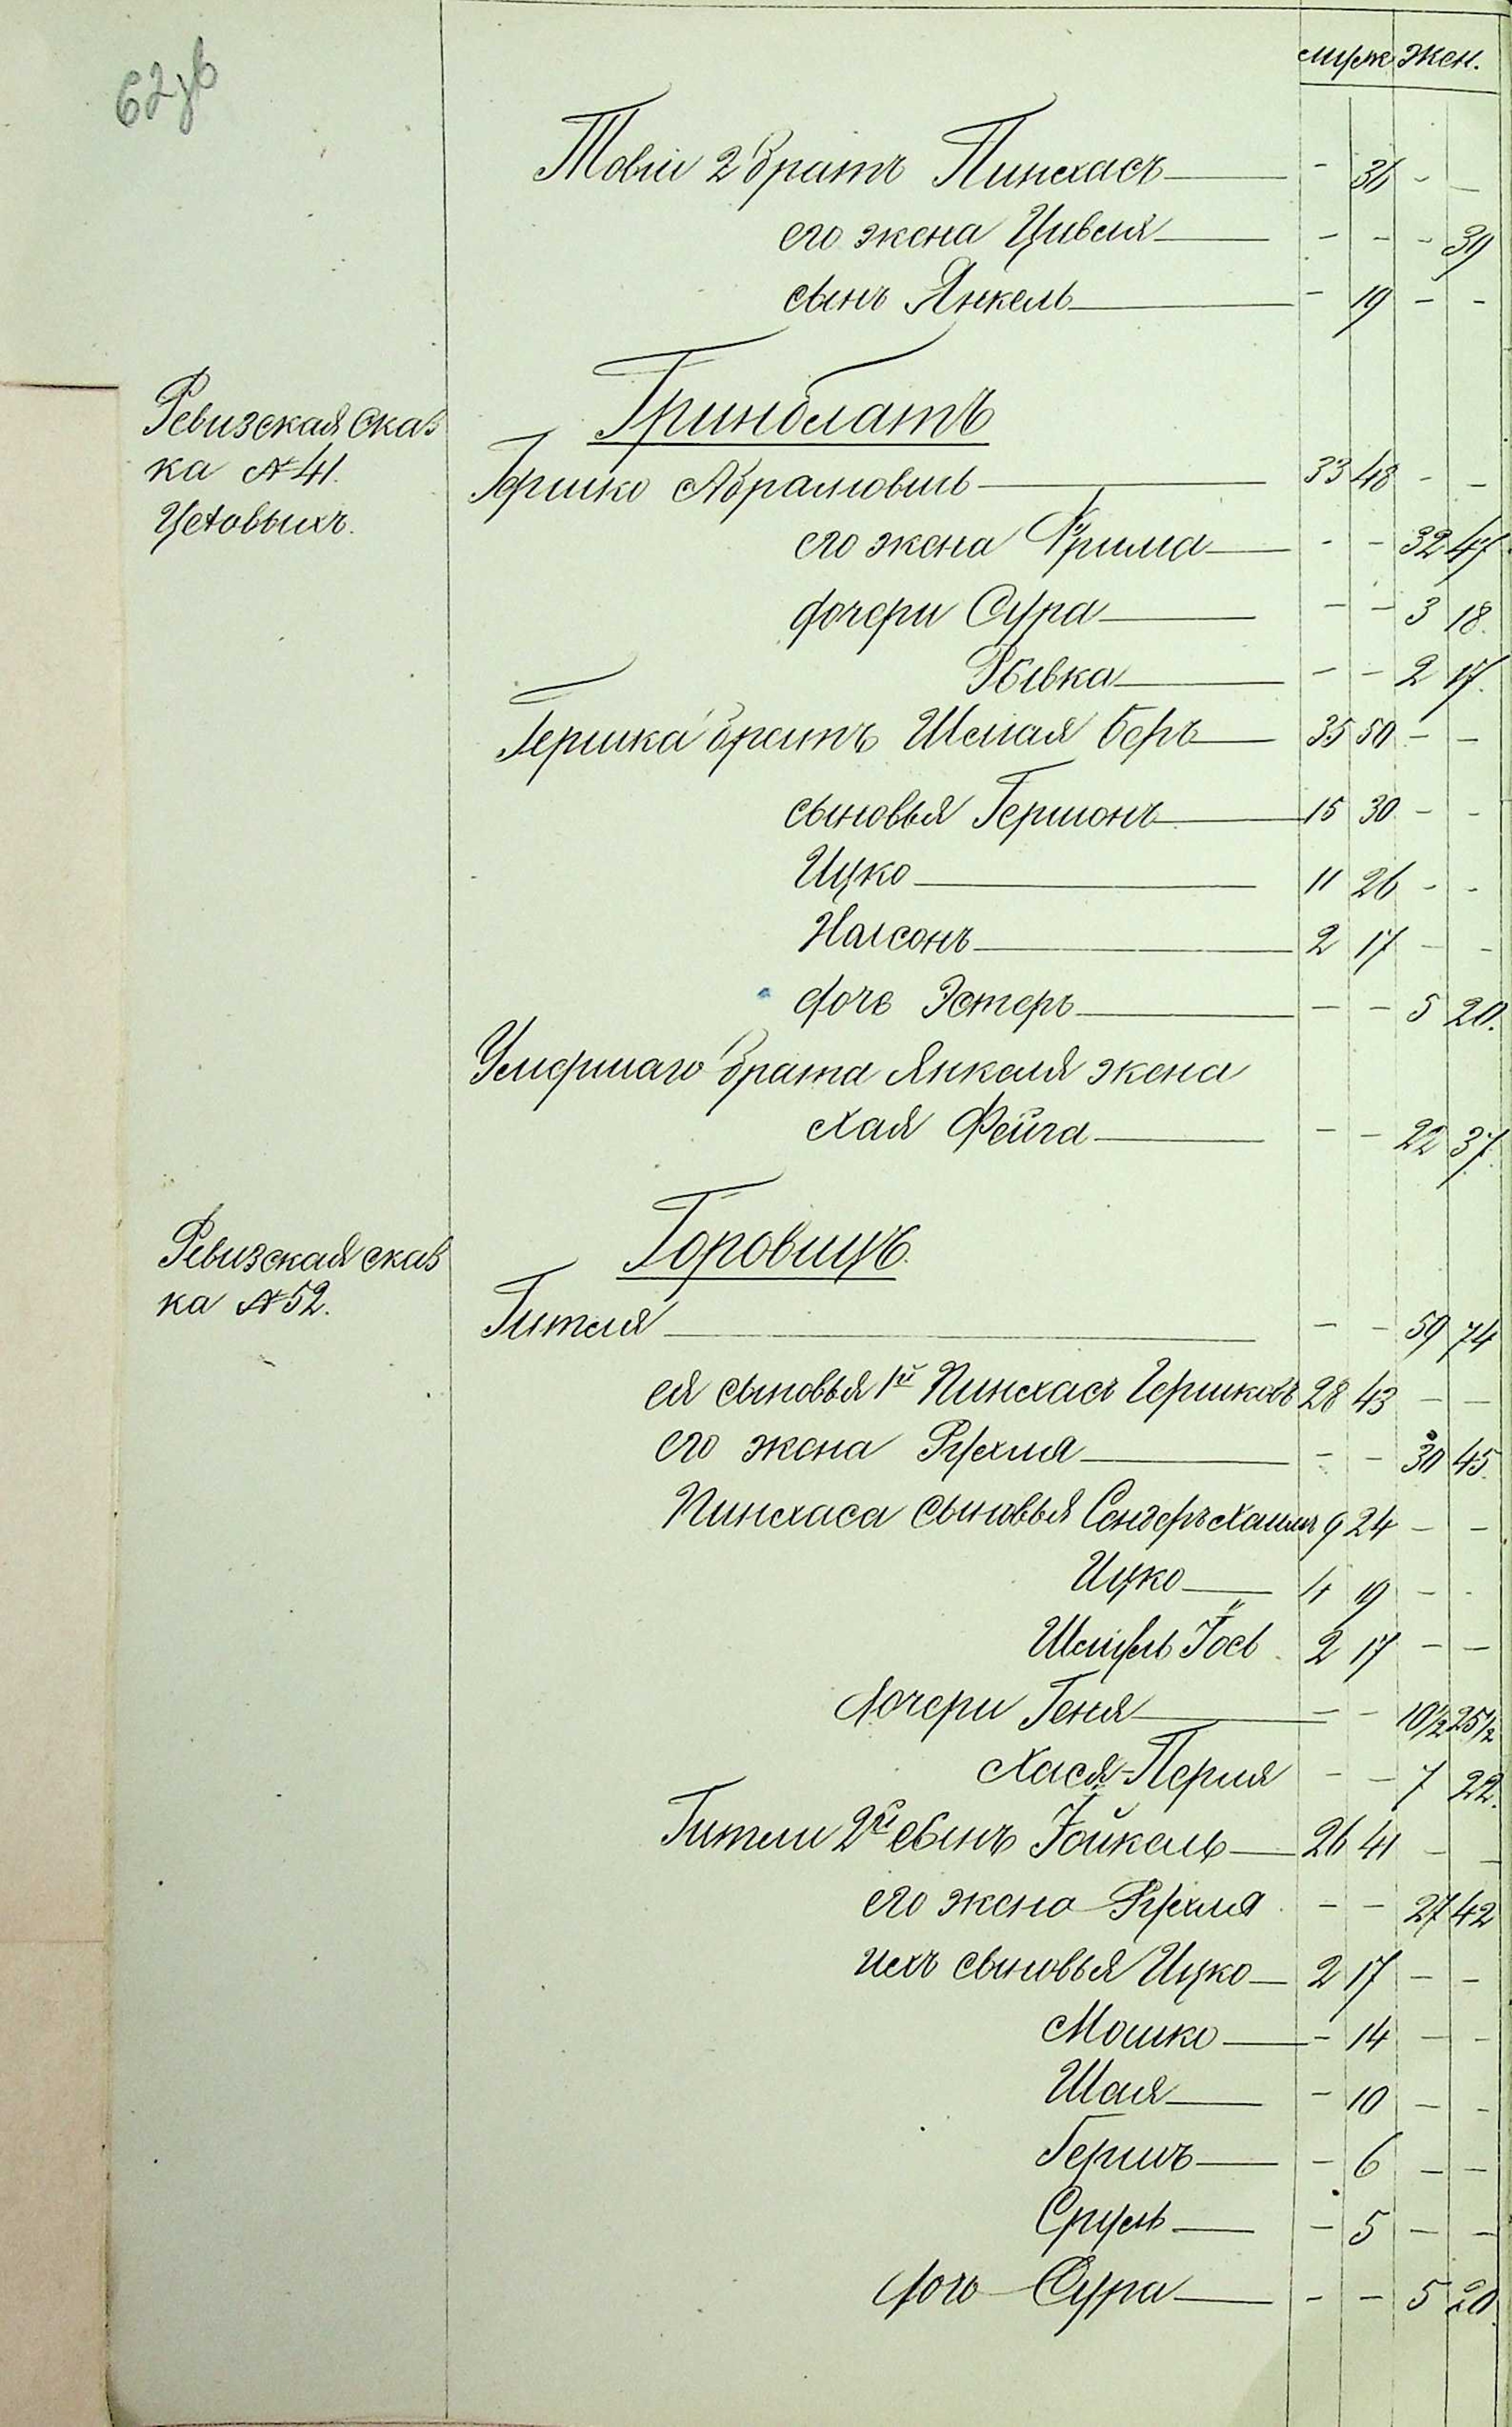 62зв
муж жен.
Товіи 2 братъ Пинхасъ — - 36 - -
его жена Цивья — - - - 39
сынъ Янкель — - 19 - -
Гринблатъ
Ревизская сказ
ка № 41.
Цеховыхъ.
Гершко Абрамовичъ — 33 48 - -
его жена Фрима — - - 32 47
дочери Сура — - - 3 18.
Рывка — - - 2 17.
Гершка братъ Шмая Беръ — 35 50 - -
сыновья Гершонъ — 15 30 - -
Ицко — 11 26 - -
Нахсонъ — 2 17 - -
дочь Эстеръ — - - 5 20.
Умершаго брата Янкеля жена
Хая Фейга — - - 22 37.
Горовицъ.
Ревизская сказ
ка № 52.
Гитля — - - 59 74
ея сыновья 1й Пинхасъ Гершковъ 28 43 - -
его жена Рухля — - - 30 45.
Пинхаса сыновья Сендеръ Хаимъ 9 24 - -
Ицко — 4 19 - -
Шмуль Іось 2 17 - -
дочери Геня — - - 10½ 25½
Хася-Перля - - 7 22.
Гитли 2й сынъ Іойкель — 26 41 - -
его жена Рухля - - 27 42
ихъ сыновья Ицко — 2 17 - -
Мошко — - 14 - -
Шая — - 10 - -
Гершъ — - 6 - -
Сруль — - 5 - -
дочь Сура — - - 5 20.